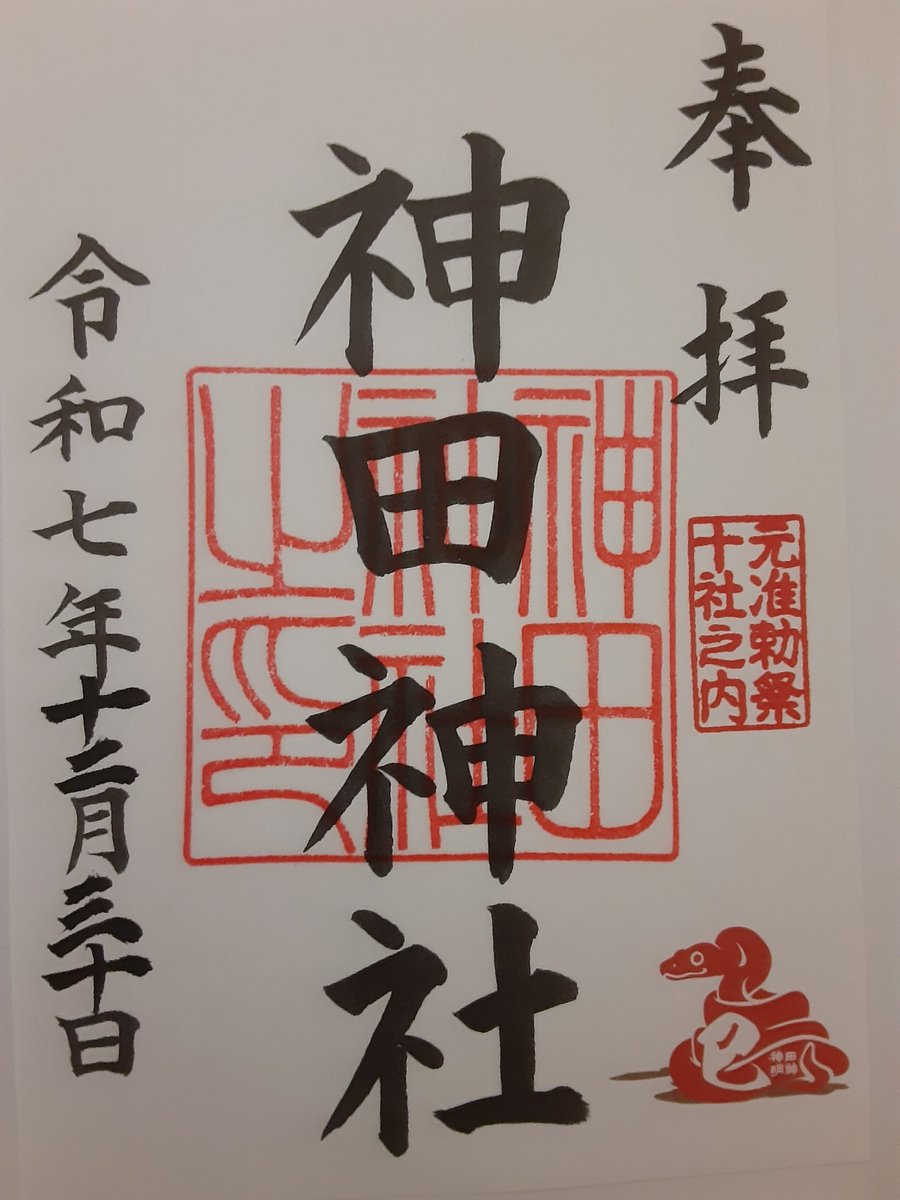 奉拝
元准勅祭
十社之内
神田神社
神田
神社
之印
令和七年十二月三十日
巳
神田
明神